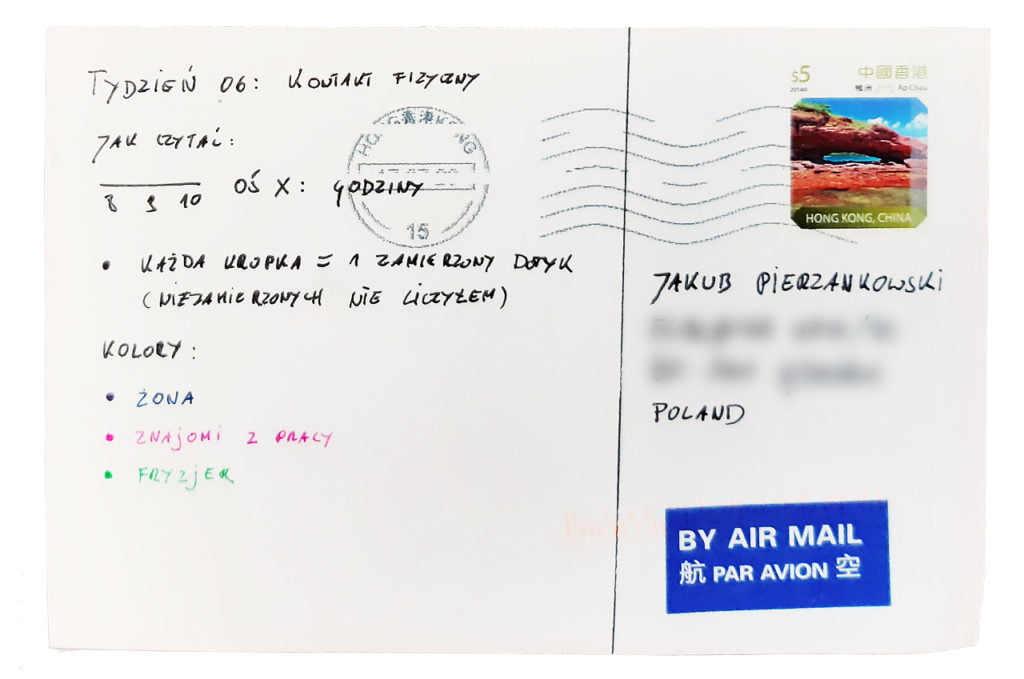 TYDZIEŃ 06: KONTAKT FIZYCZNY
JAK CZYTAĆ:
8 9 10 OŚ X: GODZINY
• KAŻDA KROPKA = 1 ZAMIERZONY DOTYK
(NIEZAMIERZONYCH NIE LICZYŁEM)
KOLORY:
• ŻONA
• ZNAJOMI Z PRACY
• FRYZJER
HONG KONG
香港
15
$5 中國香港
鴨洲 Ap Chau
HONG KONG, CHINA
JAKUB PIERZANKOWSKI
POLAND
BY AIR MAIL
航 PAR AVION 空